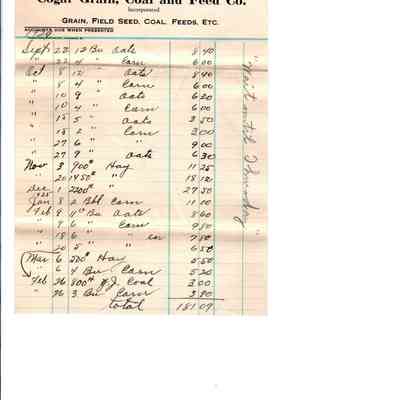 Cogar Grain, Coal and Feed Co.
Incorporated
GRAIN, FIELD SEED, COAL, FEEDS, ETC.
ACCOUNTS DUE WHEN PRESENTED
Sept 22 12 Bu Oats 8 40
" 22 4 " Corn 6 00
Oct 8 12 " Oats 8 40
" 8 4 " Corn 6 00
" 10 9 " Oats 6 20
" 10 4 " Corn 6 00
" 15 5 " Oats 3 50
" 15 2 " Corn 3 00
" 27 6 " " 9 00
" 27 9 " Oats 6 30
Nov 3 900# Hay 11 25
" 20 1450# " 18 12
Dec 1 2200# " 27 50
1925
Jan 8 2 Bbl Corn 11 00
Feb 9 Bu Oats 8 60
" 8 6 " Corn 9 80
" 18 6 " " 7 80
" 20 5 " 6 50
Mar 6 500# Hay 5 50
" 6 4 Bu Corn 5 20
Feb 26 800# Coal 3 00
" 26 3 Bu Corn 3 90
total 181 09
"Wait until Thursday"